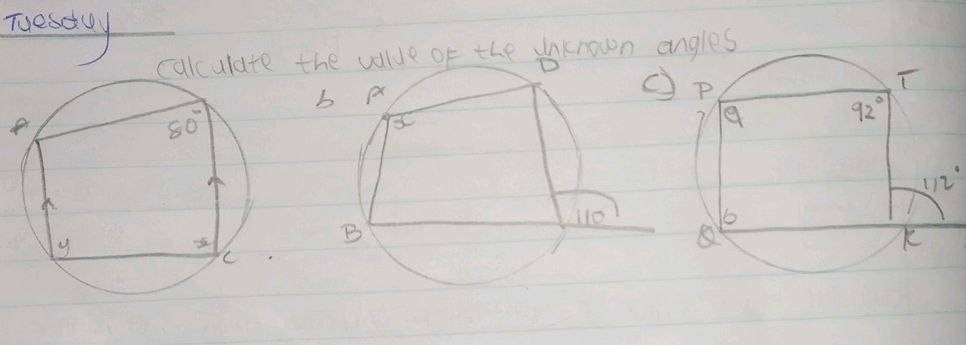 Tuesday
calculate the value of the unknown angles
A 80° y x C
b A D x B 110
c) P T a 92° b Q R 112°